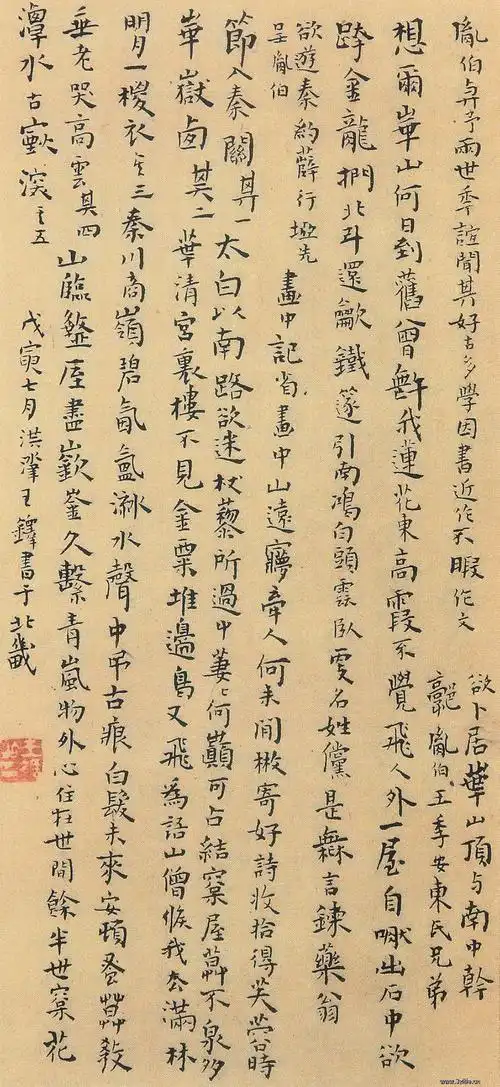 胤伯與予兩世季誼聞其好古多學因書近作不暇作文
欲卜居崋山頂与南中幹
胤伯王季安東民兄弟
想爾崋山何日到舊曾無我蓮花東高霞不覺飛人外一屋自出石中欲
跨金龍捫北斗還龡鐵篴引南鴻白頭雲臥變名姓儻是無言鍊藥翁
欲遊秦約薛行塢先
呈胤伯
畫中記省畫中山遠寱牽人何未閒檄寄好詩收拾得芙蓉時
節入秦關其一太白以南路欲迷杖藜所過中萋〻何巔可占結窠屋不泉多
崋嶽鹵其二華清宮裏樓不見金粟堆邊鳥又飛為語山僧候我去滿林
明月一椶衣其三秦川商嶺碧氤氳水聲中吊古痕白髮未來安頓蚤教
垂老哭高雲其四山臨盩厔盡嶔崟久繫青嵐物外心住在世間餘半世窠花
潭水古巚深其五
戊寅七月洪王鐸書于北畿